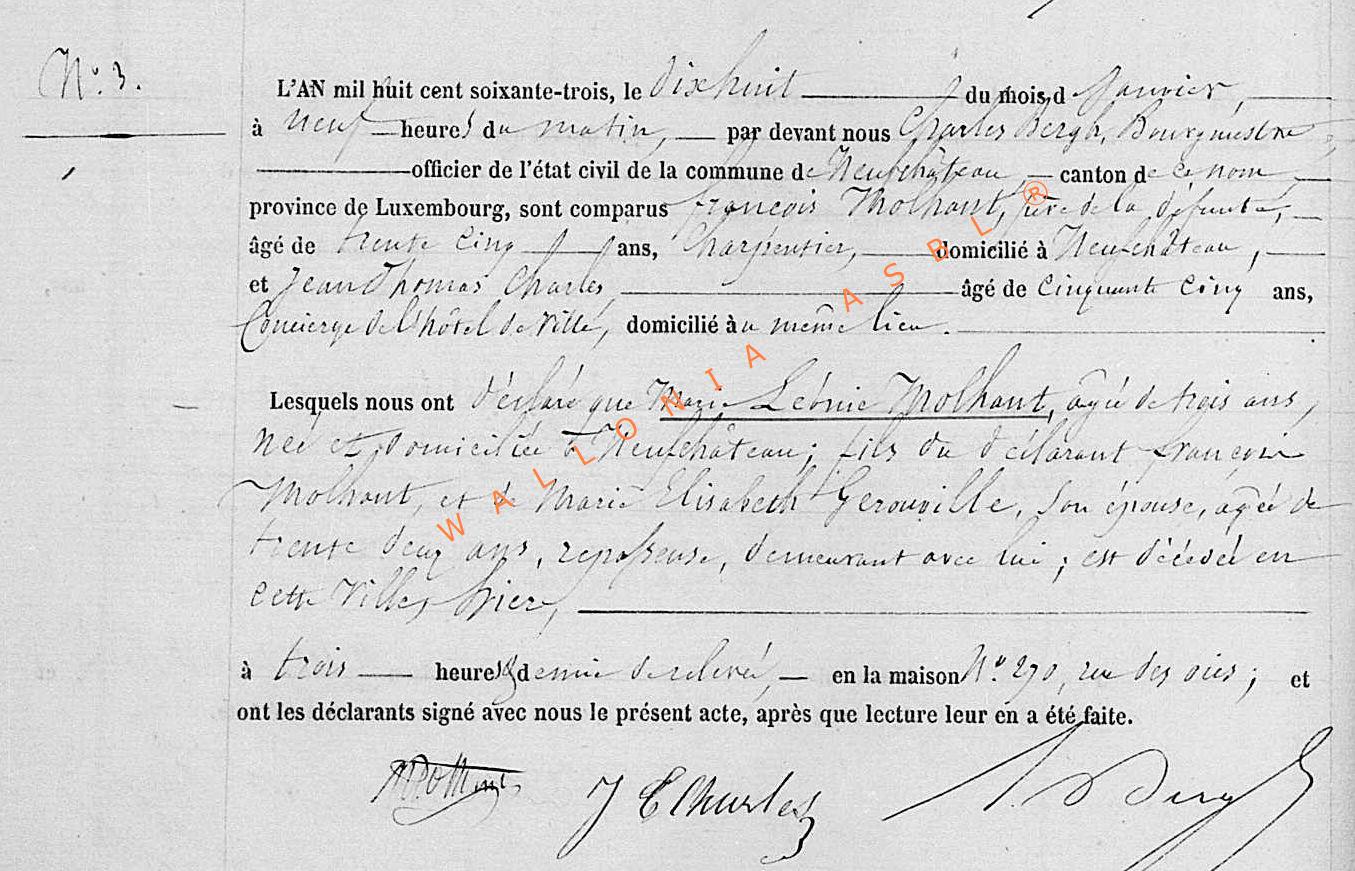 N.º 3.
L'AN mil huit cent soixante-trois, le dixhuit du mois d Janvier,
à neuf heures du matin, par devant nous Charles Bergh, Bourgmestre,
officier de l'état civil de la commune de Neufchâteau, canton de ce nom,
province de Luxembourg, sont comparus françois Molhant, père de la défunte,
âgé de trente cinq ans, Charpentier, domicilié à Neufchâteau,
et Jean Thomas Charles, âgé de cinquante cinq ans,
Concierge de l'hôtel de Ville, domicilié au même lieu.
Lesquels nous ont déclaré que Marie Léonie Molhant, agée de trois ans,
née et domiciliée à Neufchâteau; fille du déclarant françois
Molhant, et de Marie Elisabeth Gerouville, son épouse, agée de
trente deux ans, repasseuse, demeurant avec lui; est décédée en
cette Ville, hier,
à trois heures & demie de relevé, en la maison N.º 270, rue des oies; et
ont les déclarants signé avec nous le présent acte, après que lecture leur en a été faite.
J T Charles
WALLONIA ASBL ®